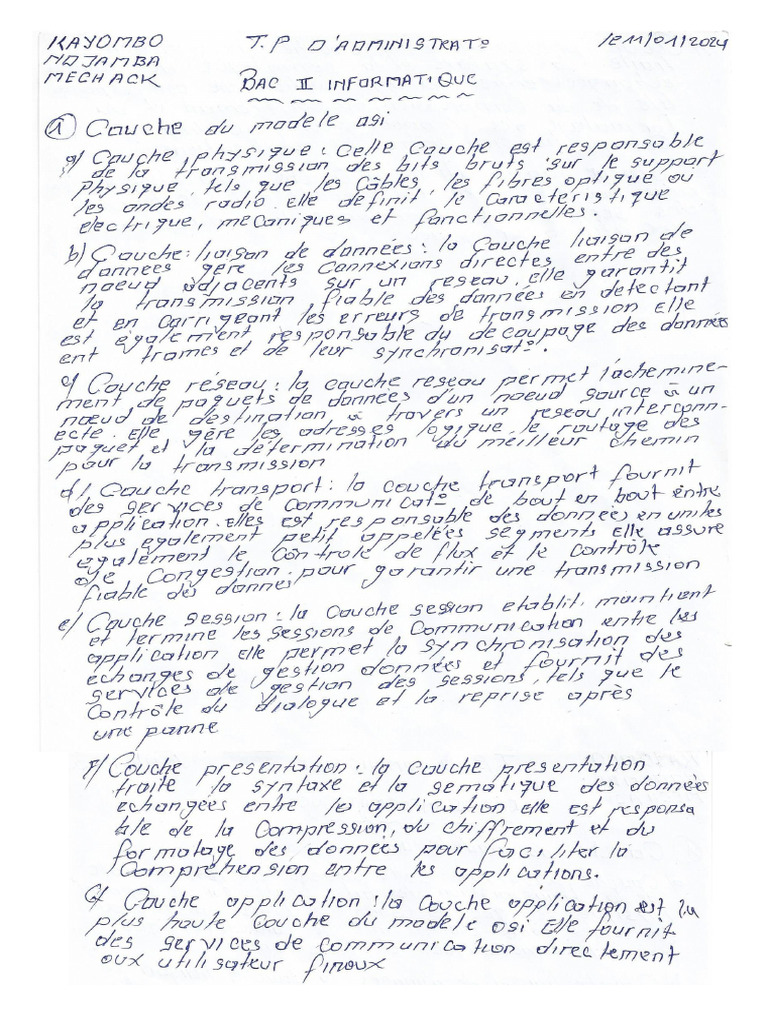 KAYOMBO
NDJAMBA
MECHACK
T.P D'ADMINISTRAT°
le 11/01/2024
BAC II INFORMATIQUE
1 Couche du modele osi
a) Couche physique : Celle Couche est responsable
de la transmission des bits bruts sur le support
physique, tels que les Câbles, les fibres optique ou
les ondes radio. elle definit le Caracteristique
electrique, mecaniques et fonctionnelles.
b) Couche : liaison de données : la Couche liaison de
données gère les Connexions directes entre des
noeud adjacents sur un reseau, elle garantit
la transmission fiable des données en detectant
et en corrigeant les erreurs de transmission Elle
est également responsable du decoupage des données
ent trames et de leur synchronisat°.
c) Couche réseau : la couche reseau permet l'achemine-
ment de paquets de données d'un noeud source à un
nœud de destination à travers un reseau interconn-
ecté. Elle gère les adresses logique, le routage des
paquet et la détermination du meilleur chemin
pour la transmission
d) Couche transport : la couche transport fournit
des services de Communicat° de bout en bout entre
application. Elles est responsable des données en unites
plus egalement petit appelées segments Elle assure
egalement le Controle de flux et le contrôle
de Congestion pour garantir une transmission
fiable de donnes
e) Couche session : la Couche session etablit, maintient
et termine les sessions de Communication entre les
application Elle permet la synchronisation des
echanges de gestion données et fournit des
services de gestion des sessions, tels que le
Contrôle du dialogue et la reprise après
une panne
f) Couche presentation : la couche presentation
traite la syntaxe et la sematique des données
echangées entre les application elle est responsa
ble de la Compression, du chiffrement et du
formatage des données pour faciliter la
Compréhension entre les applications.
G) Couche application : la Couche application est la
plus haute Couche du modele osi Elle fournit
des services de communication directement
aux utilisateur finaux